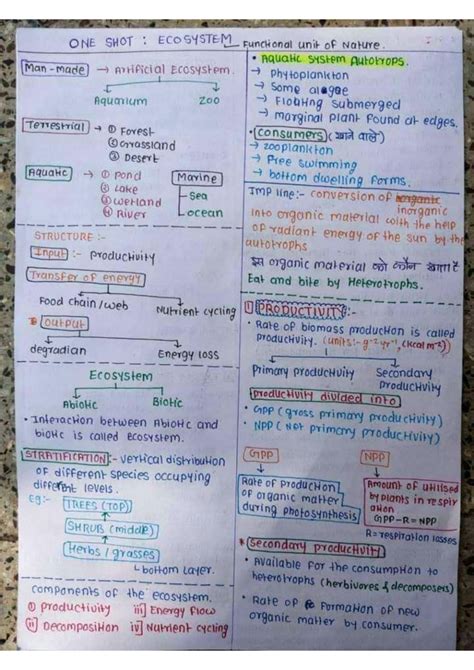 ONE SHOT : ECOSYSTEM Functional unit of Nature.
Man-made → Artificial Ecosystem.
Aquarium ZOO
Terrestrial → ① Forest
② Grassland
③ Desert
Aquatic → ① Pond
② Lake
③ Wetland
④ River
Marine
Sea
ocean
STRUCTURE :-
Input :- productivity
Transfer of energy
Food chain/web Nutrient cycling
Output
degradian Energy loss
Ecosystem
Abiotic Biotic
• Interaction between Abiotic and
biotic is called ecosystem.
STRATIFICATION :- vertical distribution
of different species occupying
different levels.
eg:- TREES (TOP)
SHRUB (middle)
Herbs / grasses
bottom layer.
components of the ecosystem.
① productivity iii] Energy flow
ii] Decomposition iv] Nutrient cycling
• Aquatic system Autotrops.
→ Phytoplankton
→ Some algae
→ Floating submerged
→ marginal plant found at edges.
• Consumers (खाने वाले)
→ zooplankton
→ Free swimming
→ bottom dwelling forms.
IMP line:- conversion of inorganic
into organic material with the help
of radiant energy of the sun by the
autotrophs
इस organic material को कौन खाता है
Eat and bite by Heterotrophs.
1 PRODUCTIVITY :-
• Rate of biomass production is called
productivity. (units:- g⁻² yr⁻¹, (kcal m⁻²)
Primary productivity Secondary productivity
productivity divided into
• GPP (gross primary productivity)
• NPP (Net primary productivity)
GPP
Rate of production
of organic matter
during photosynthesis
NPP
Amount of utilised
by plants in respir
ation
GPP – R = NPP
R = respiration losses
Secondary productivity
• Available for the consumption to
heterotrophs (herbivores & decomposers)
• Rate of formation of new
organic matter by consumer.